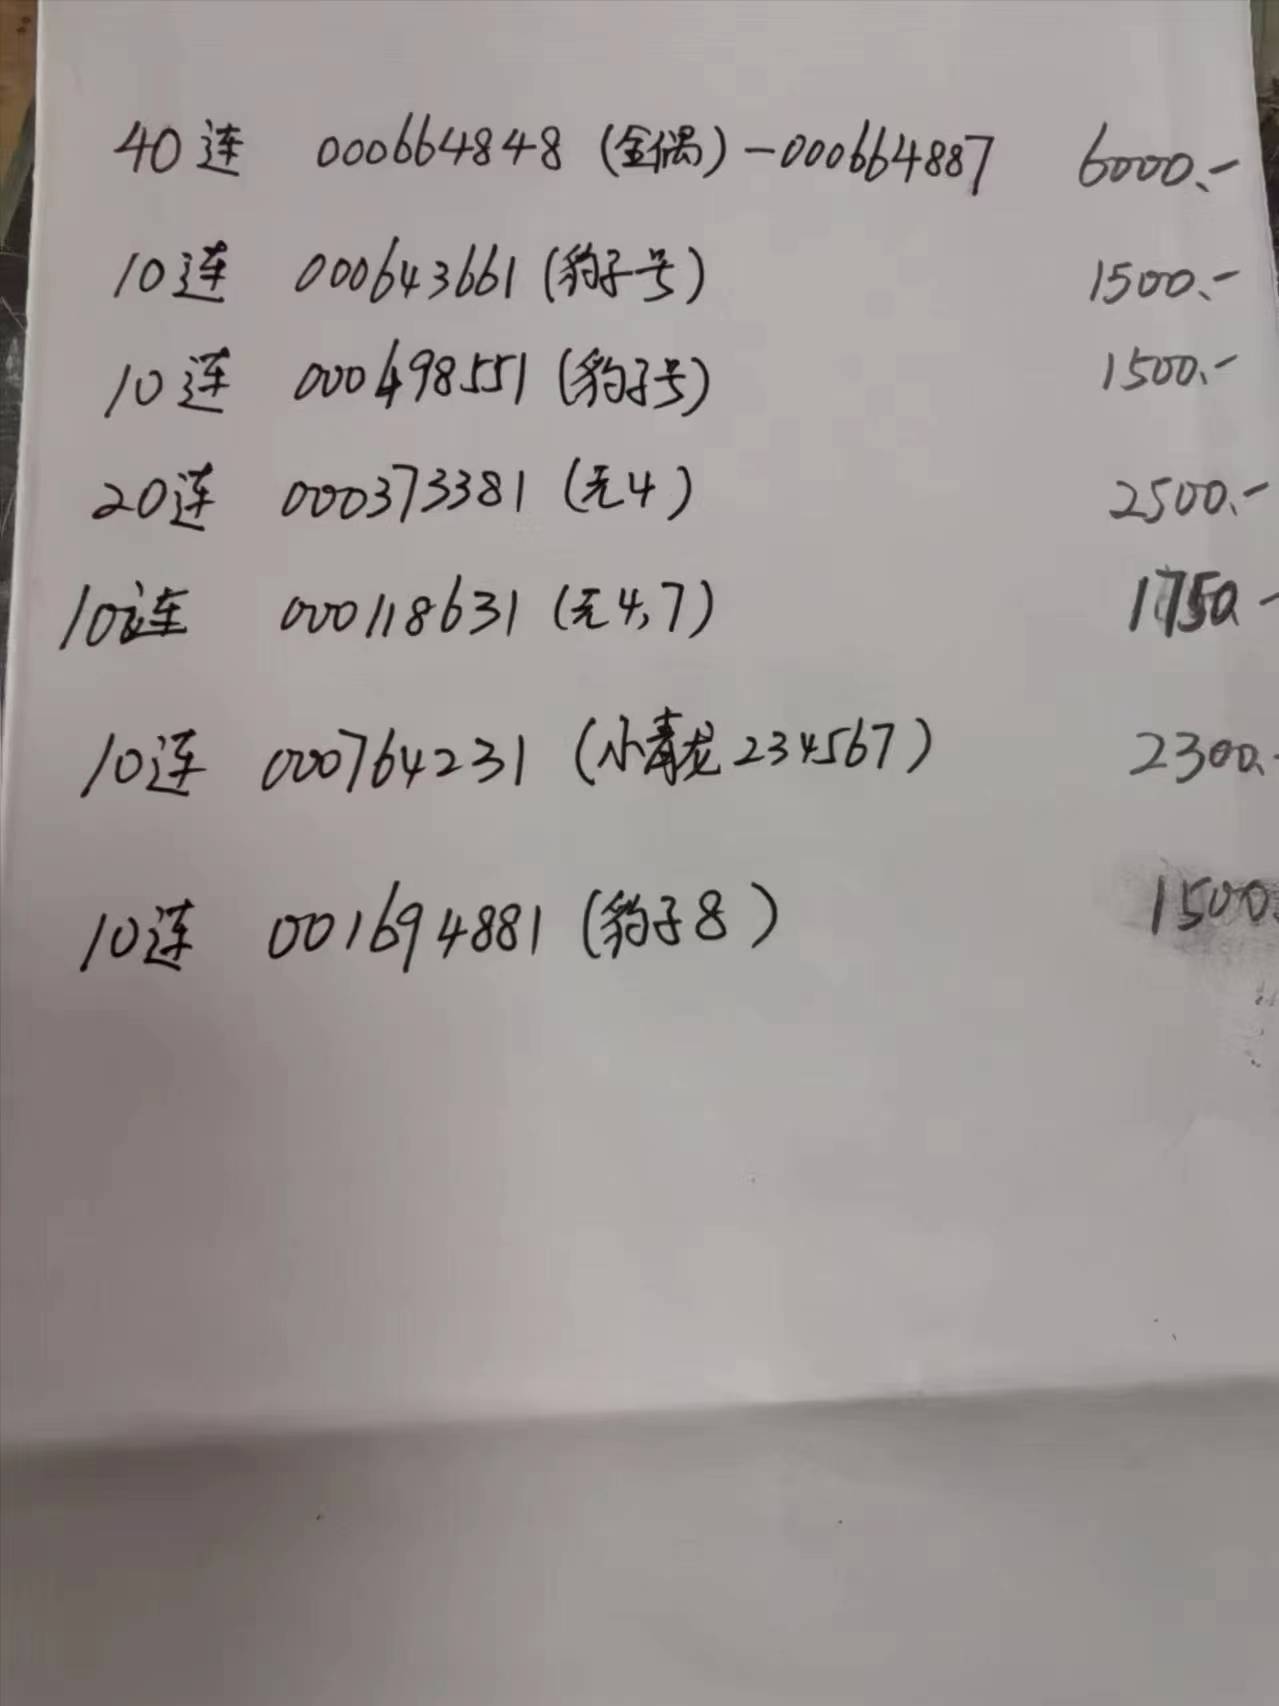 40连 000664848 (全偶) -000664887 6000.-
10连 000643661 (豹子号) 1500.-
10连 000498551 (豹子号) 1500.-
20连 000373381 (无4) 2500.-
10连 000118631 (无4,7) 1750.-
10连 000764231 (小青龙234567) 2300.-
10连 001694881 (豹子8) 1500.